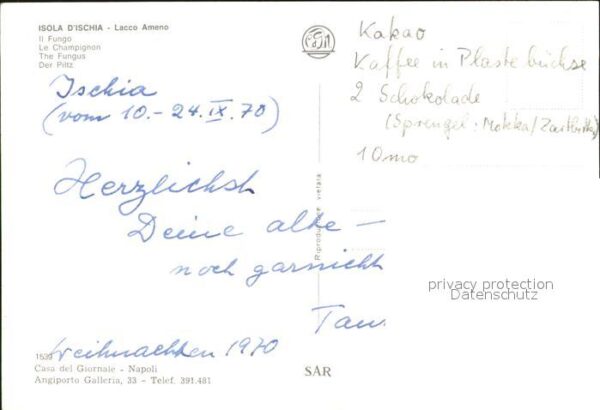 ISOLA D'ISCHIA - Lacco Ameno
Il Fungo
Le Champignon
The Fungus
Der Piltz
Ischia
(vom 10.-24.IX.70)
Herzlichst
Deine alte -
noch garnicht
Weihnachten 1970
1639
Casa del Giornale - Napoli
Angiporto Galleria, 33 - Telef. 391.481
Riproduzione vietata
SAR
Kakao
Kaffee in Plastebüchse
2 Schokolade
(Sprengel: Mokka/Zartbitter)
10 mo
privacy protection
Datenschutz